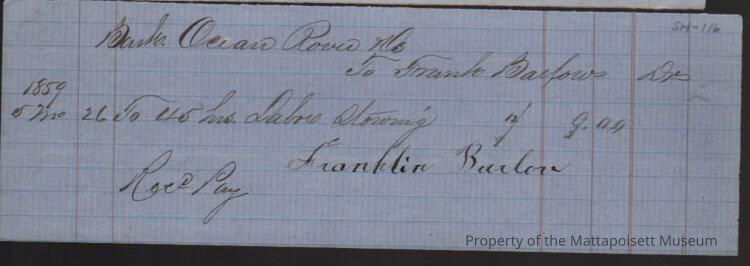 SH-116
Bark Ocean Rover
To Frank Barlow Dr
1859
5 mo 26 To 45 hrs. Labor Stowing 9.00
Franklin Barlow
Recd Pay
Property of the Mattapoisett Museum